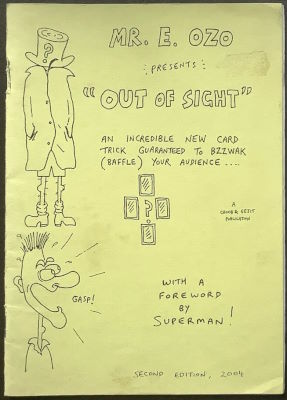 ?
MR. E. OZO
PRESENTS :
"OUT OF SIGHT"
AN INCREDIBLE NEW CARD
TRICK GUARANTEED TO BZZWAK
(BAFFLE) YOUR AUDIENCE ....
?
A
PUBLICATION
GASP!
WITH A
FOREWORD
BY
SUPERMAN!
SECOND EDITION, 2004